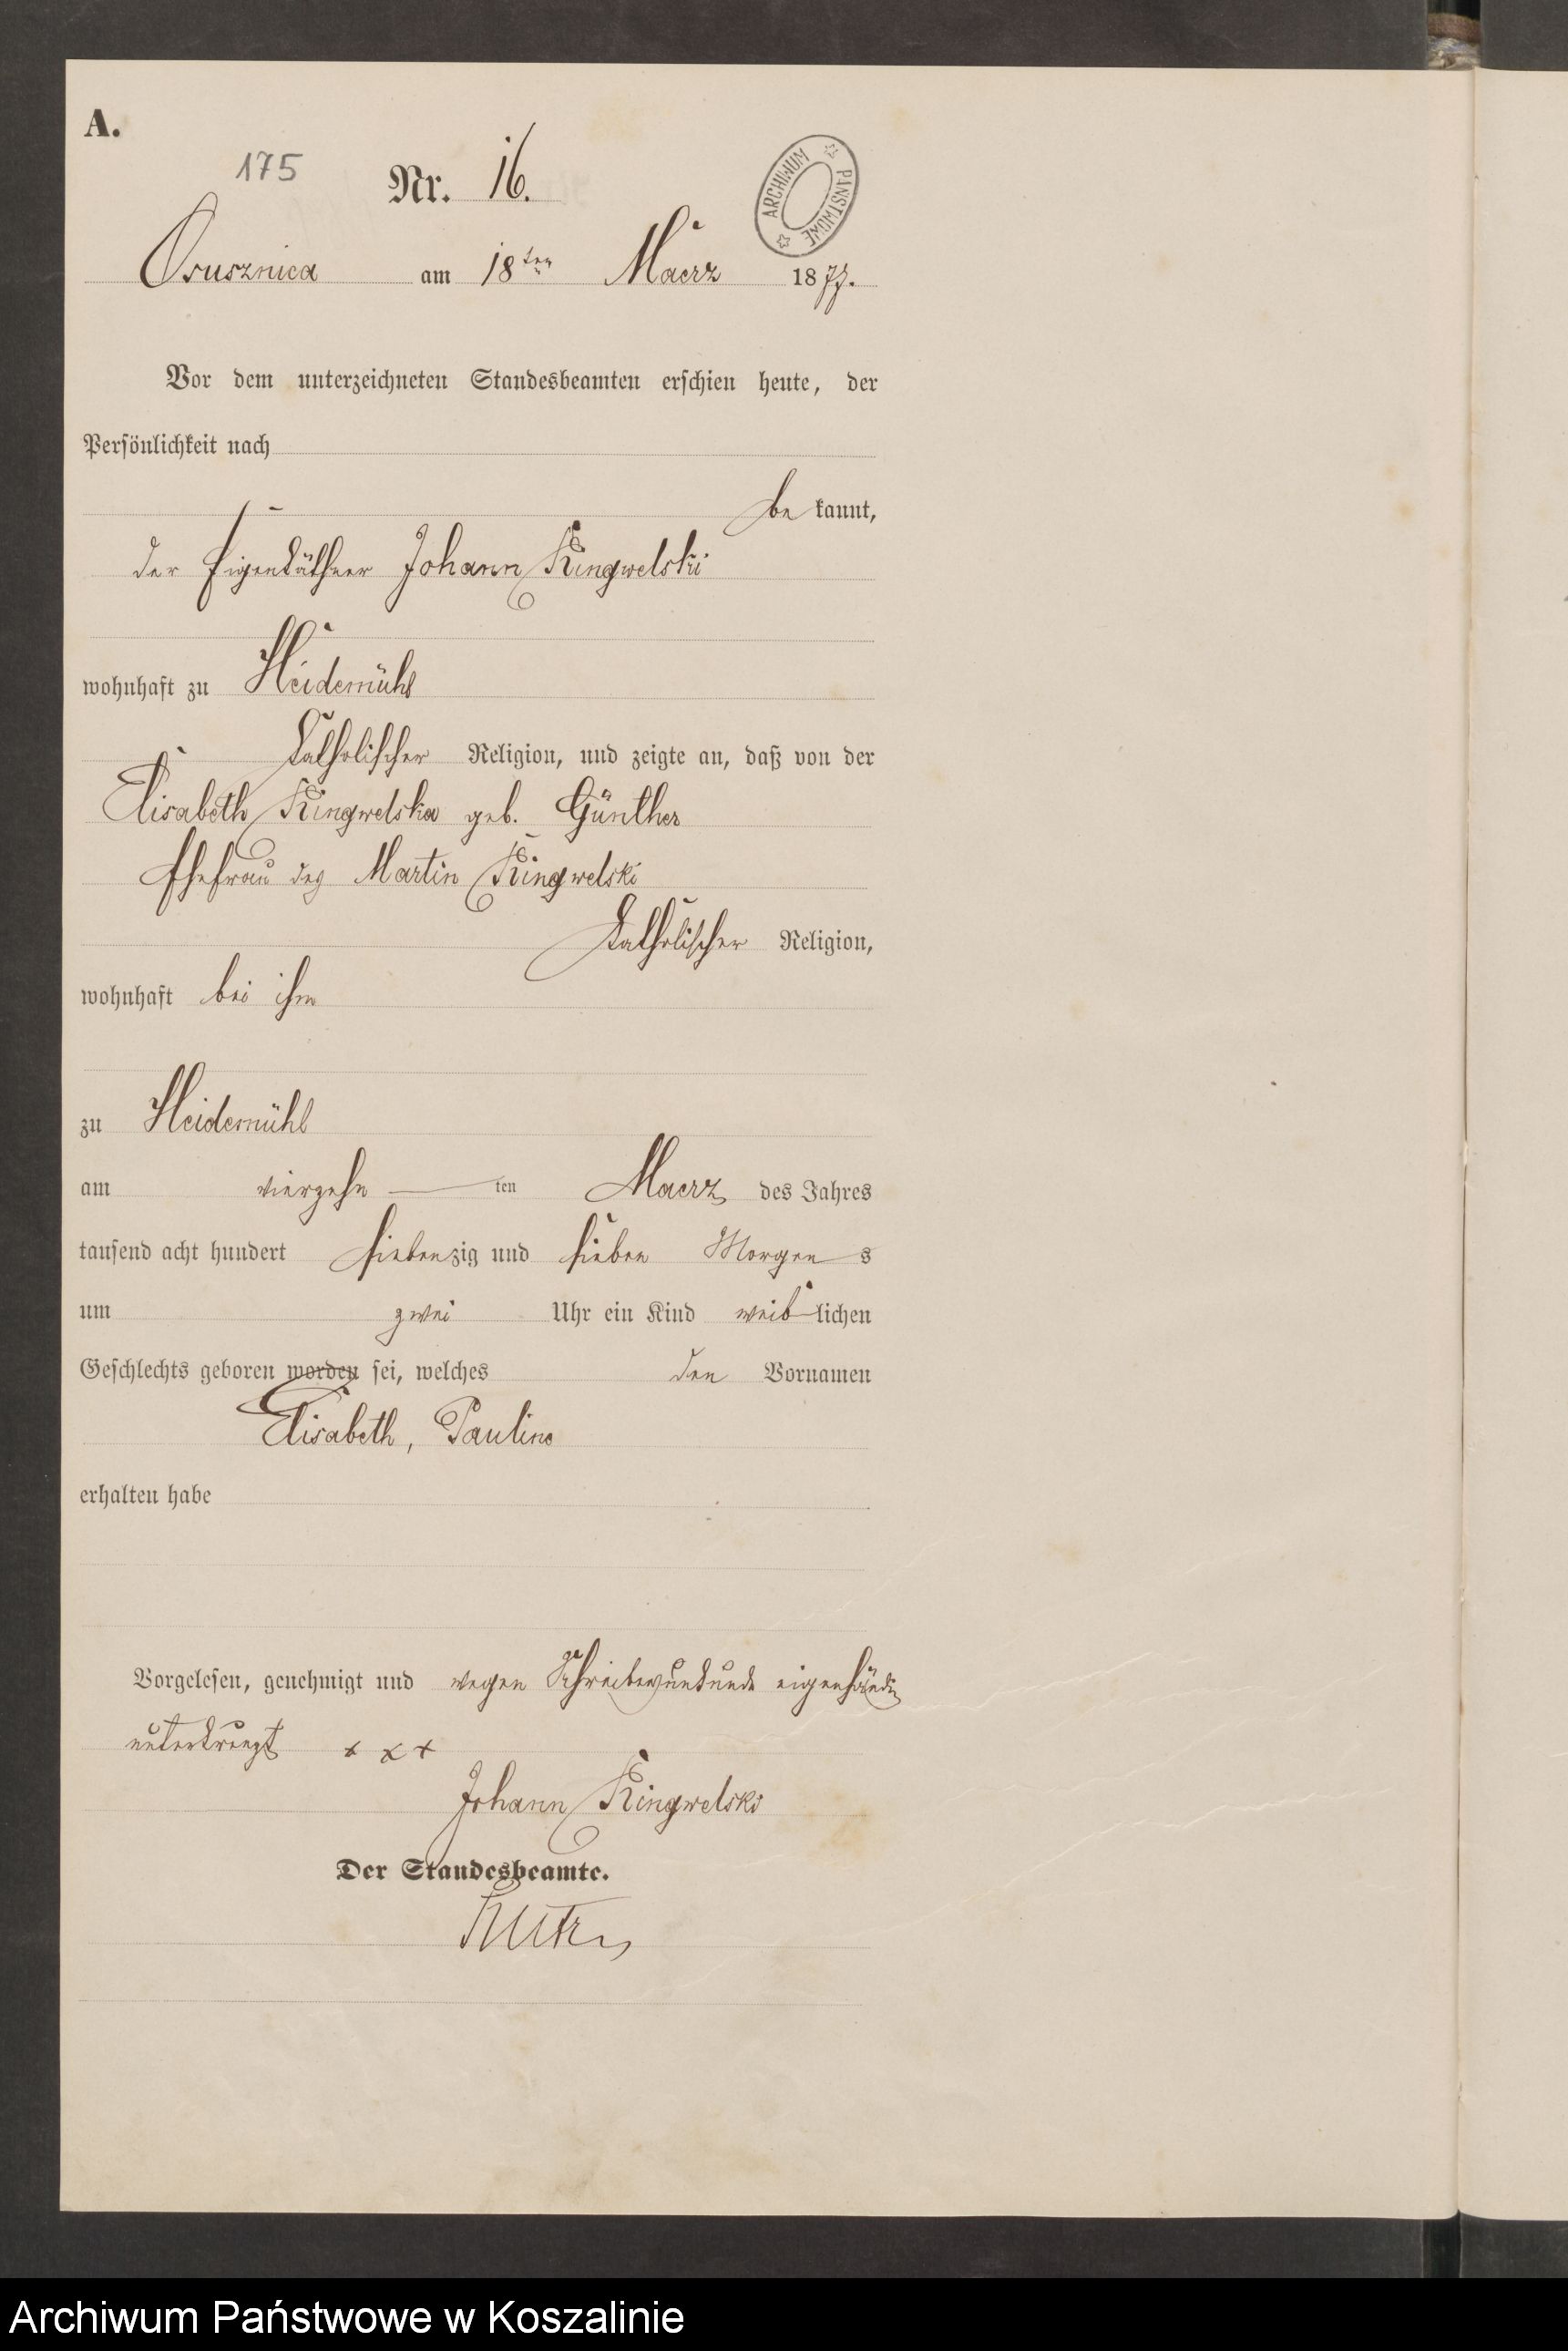 A.
175 Nr. 16.
ARCHIWUM PAŃSTWOWE
Osusznica am 18ten Maerz 1877.
Vor dem unterzeichneten Standesbeamten erschien heute, der
Persönlichkeit nach
be kannt,
der Eigenkäthner Johann Kingwelski
wohnhaft zu Heidemühl
katholischer Religion, und zeigte an, daß von der
Elisabeth Kingwelska geb. Günther
Ehefrau des Martin Kingwelski
katholischer Religion,
wohnhaft bei ihm
zu Heidemühl
am vierzehn ten Maerz des Jahres
tausend acht hundert siebenzig und sieben Morgens
um zwei Uhr ein Kind weiblichen
Geschlechts geboren worden sei, welches den Vornamen
Elisabeth, Pauline
erhalten habe
Vorgelesen, genehmigt und wegen eigenhändig
unterkreuzt x x x
Johann Kingwelski
Der Standesbeamte.
Archiwum Państwowe w Koszalinie